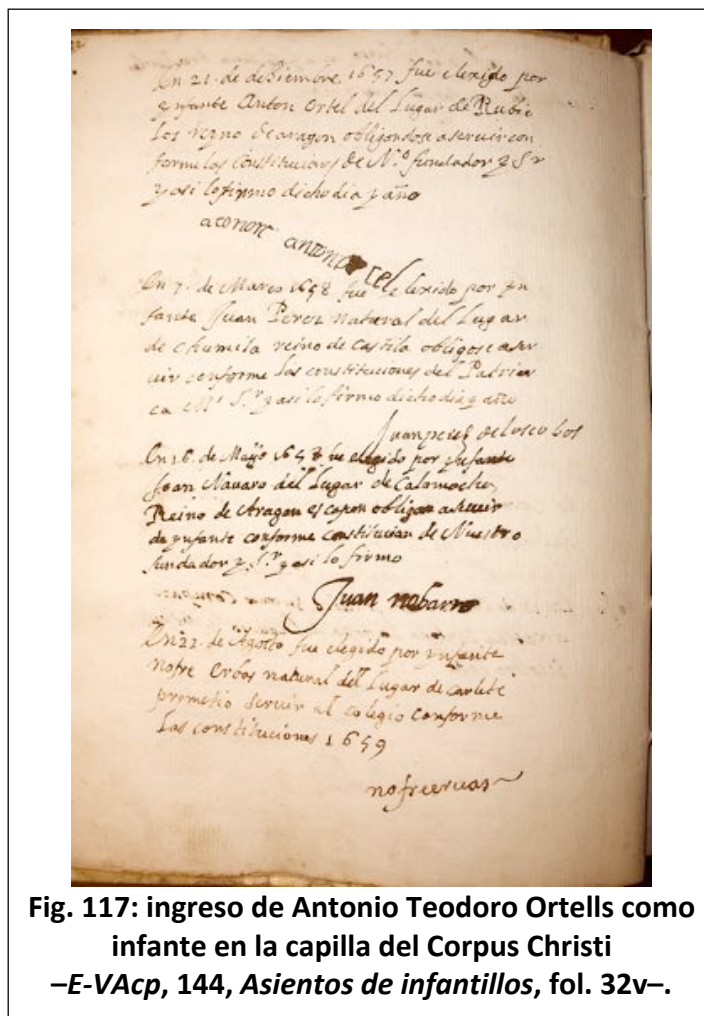 En 21. de deSiembre, 1657 fue elexido por
ynfante Anton Ortel del Lugar de Rubie
los reyno de aragon obligondose a seruir con
forme las constituciones de N.º fundador y Sr
y asi lo firmo dicho dia y año
antonortel
En 7. de Marco 1658 fue elexido por yn
fante Juan Perez natural del Lugar
de chumila reino de castila obligose a ser
uir conforme las constituciones del Patriar
ca Nº S.r y asi lo firmo dicho dia y año
Juan perez de los cobos
En 16. de Maijo 1658 fue elegido por ynfante
Joan Navaro del Lugar de Calamocha,
Reino de Aragon es capon obligase a seruir
de ynfante conforme constitucion de Nuestro
fundador y S.r y asi lo firmo
Juan nabarro
En 22 de Agosto fue elegido por infante
nofre Erbas natural del Lugar de carlete
prometio seruir al colegio conforme
las constituciones 1659
nofre eruas
Fig. 117: ingreso de Antonio Teodoro Ortells como
infante en la capilla del Corpus Christi
–E-VAcp, 144, Asientos de infantillos, fol. 32v–.